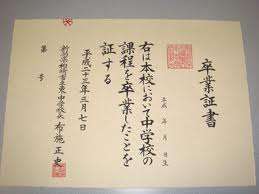 卒業証書
平成 年 月 日生
右は本校において中学校の
課程を卒業したことを
証する
平成二十三年三月七日
中学校長 布施正吏
第 号